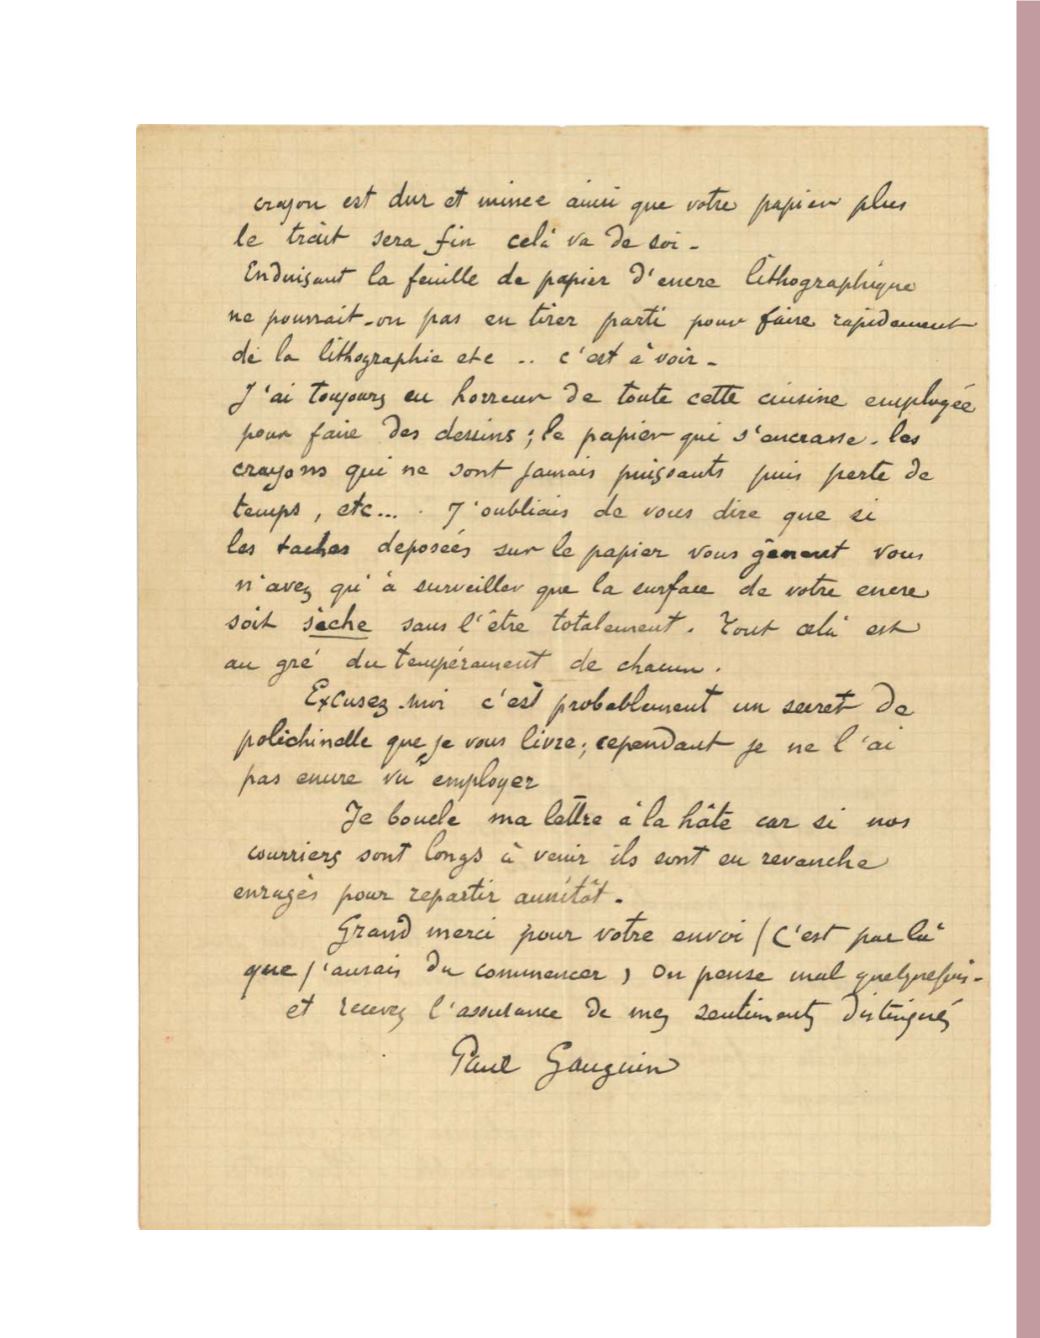 crayon est dur et mince ainsi que votre papier plus
le trait sera fin celà va de soi -
Enduisant la feuille de papier d'encre lithographique
ne pourrait-on pas en tirer parti pour faire rapidement
de la lithographie etc .. c'est à voir -
J'ai toujours eu horreur de toute cette cuisine employée
pour faire des dessins ; le papier qui s'encrasse - les
crayons qui ne sont jamais puissants puis perte de
temps, etc... . J'oubliais de vous dire que si
les taches déposées sur le papier vous gênent vous
n'avez qu'à surveiller que la surface de votre encre
soit sèche sans l'être totalement. Tout celà est
au gré du tempérament de chacun.
Excusez-moi c'est probablement un secret de
polichinelle que je vous livre ; cependant je ne l'ai
pas encore vu employer
Je boucle ma lettre à la hâte car si nos
courriers sont longs à venir ils sont en revanche
enragés pour repartir aussitôt.
Grand merci pour votre envoi (C'est par là
que j'aurais du commencer) On pense mal quelquefois -
et recevez l'assurance de mes sentiments distingués
Paul Gauguin